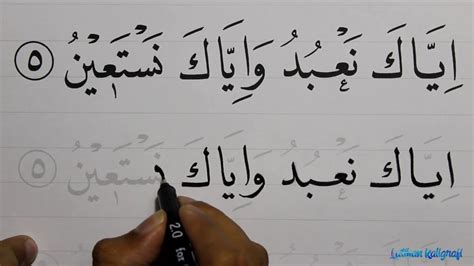 اِيَّاكَ نَعْبُدُ وَاِيَّاكَ نَسْتَعِيْنُ ٥
اِيَّاكَ نَعْبُدُ وَاِيَّاكَ نَسْتَعِيْنُ ٥
2.0 for
Luqman Kaligrafi